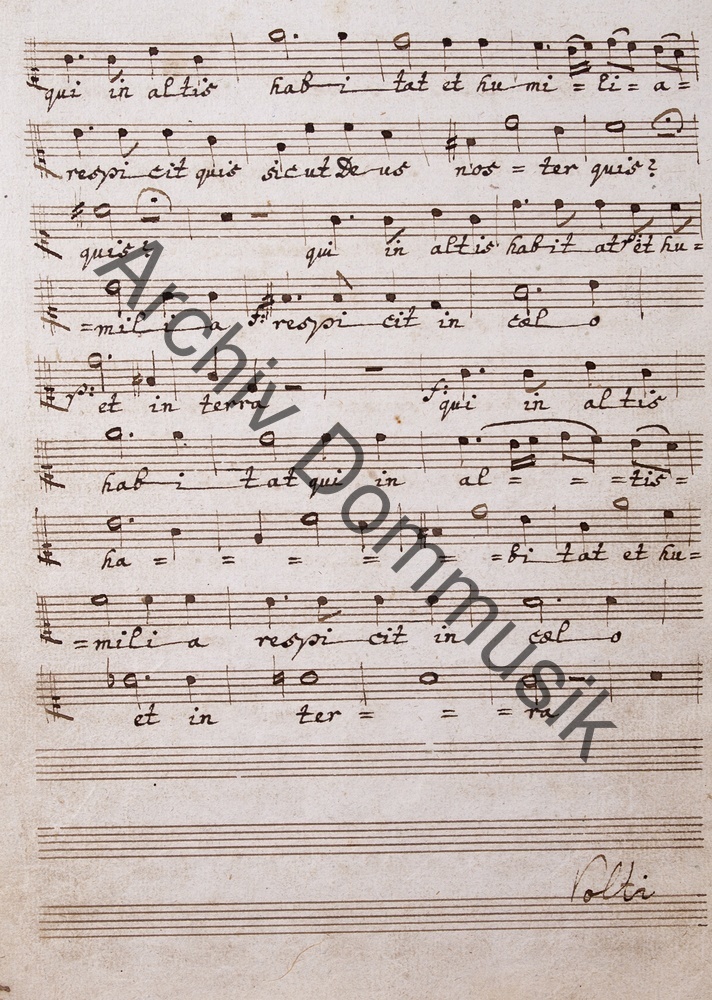 qui in altis hab i tat et hu mi = li = a =
respi cit quis sicut De us nos = ter quis?
quis? qui in altis hab it at et hu =
= mil i a f: respi cit in cæl o
p: et in terra f: qui in al tis
hab i tat qui in al = = = tis =
ha = = = = = = bi tat et hu =
= mili a respi cit in cæl o
et in ter = = = ra
Volti
Archiv Dommusik